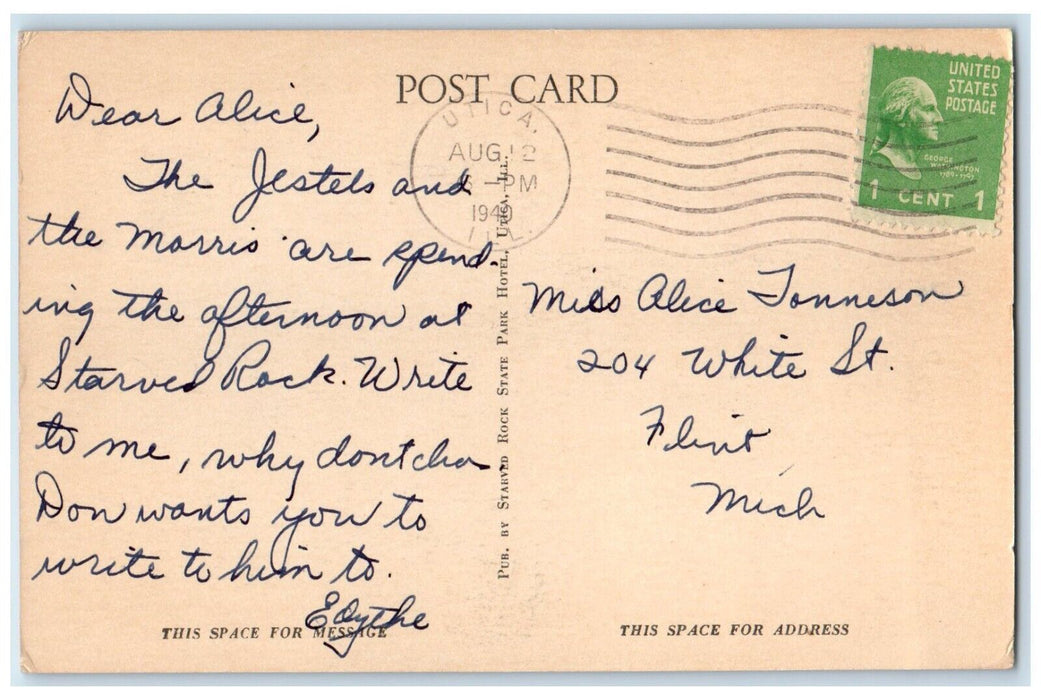 POST CARD
UTICA,
AUG 12
PM
1940
ILL.
UNITED
STATES
POSTAGE
GEORGE
WASHINGTON
1789-1797
1 CENT 1
Dear Alice,
The Jestels and
the Morris are spend-
ing the afternoon at
Starved Rock. Write
to me, why dontcha
Don wants you to
write to him to.
Edythe
PUB. BY STARVED ROCK STATE PARK HOTEL, UTICA, ILL.
Miss Alice Tonneson
204 White St.
Flint
Mich
THIS SPACE FOR MESSAGE
THIS SPACE FOR ADDRESS